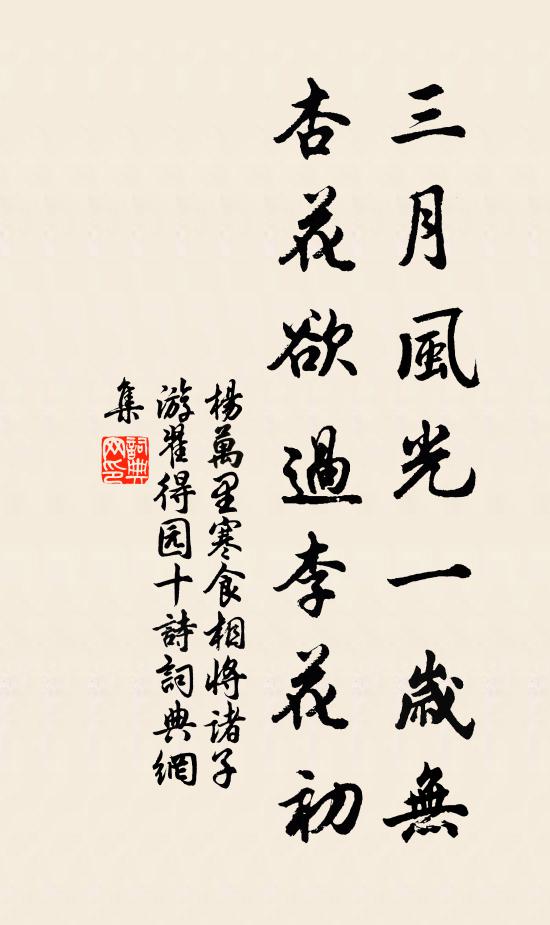 三月風光一歲無
杏花欲過李花初
楊萬里寒食相將諸子
游翟得园十詩詞典網
集
詞典網印